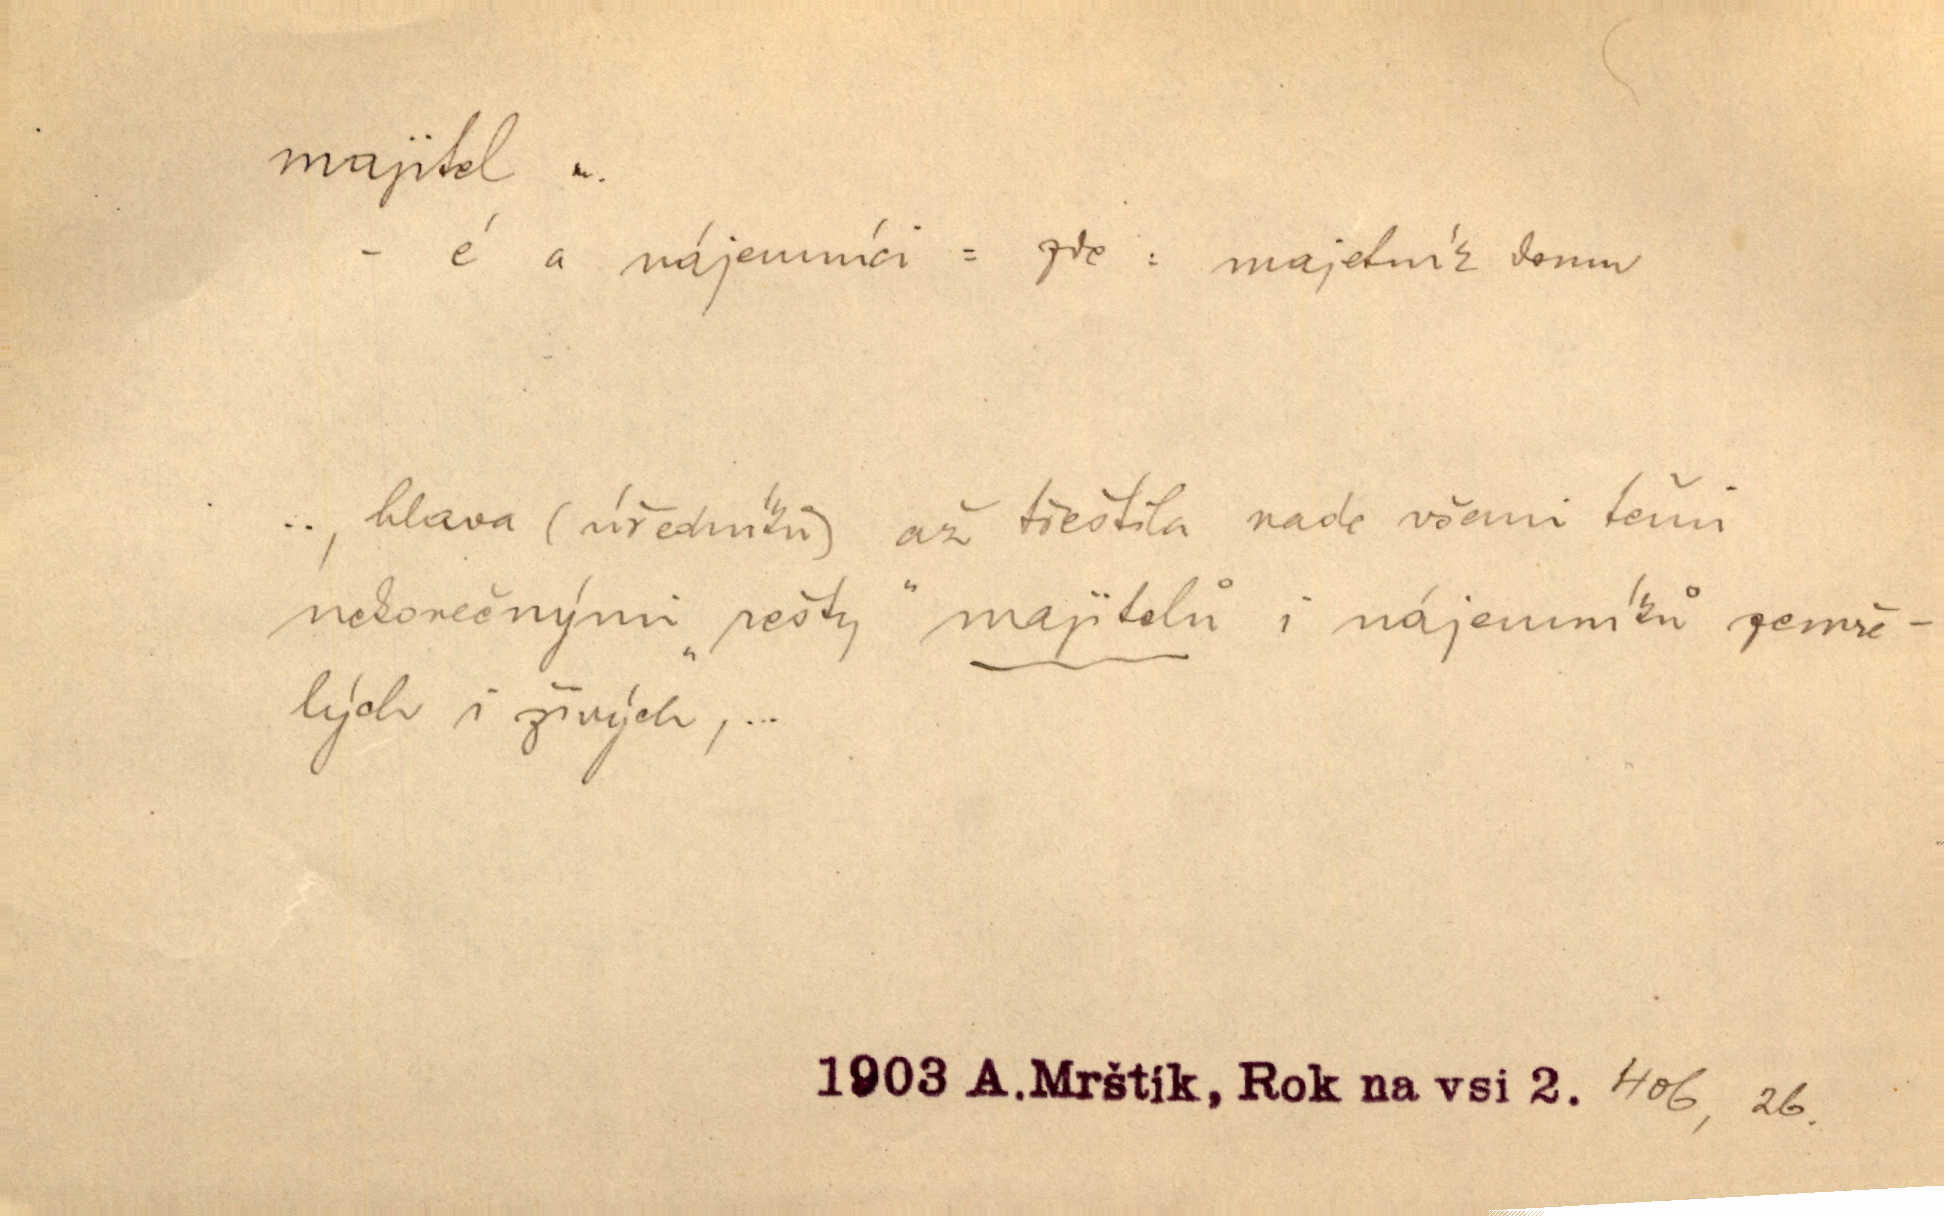 majitel m.
- é a nájemníci = zde : majetník domu
.., hlava (úředníků) až třeštila nade všemi těmi
nekonečnými „rešty“ majitelů i nájemníků zemře-
lých i živých, ...
1903 A.Mrštík, Rok na vsi 2. 406, 26.